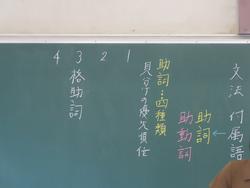 文法 付属語
助詞
助動詞
助詞…四種類
分けの優
1
2
3 格助詞
4